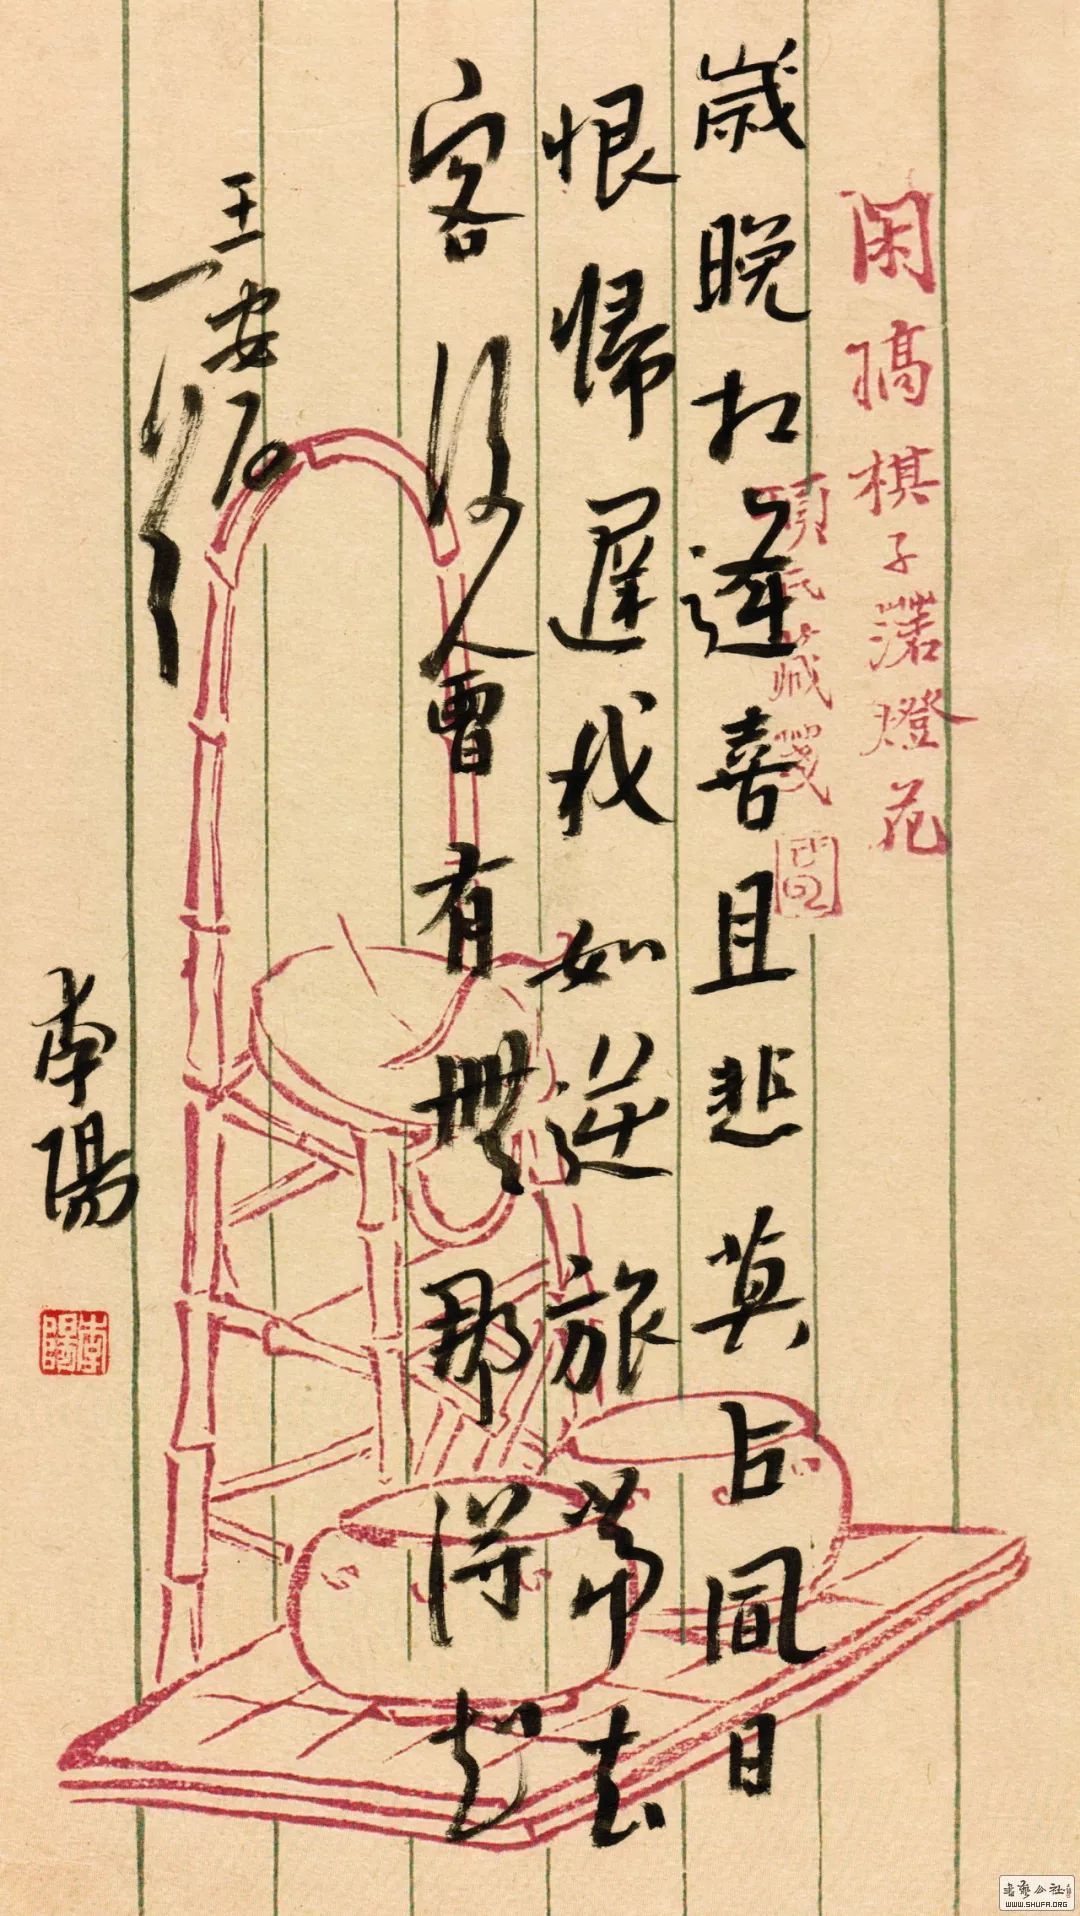 閑搞棋子落燈花
項氏藏箋
歲晚相逢喜且悲莫占風日
恨歸遲我如逆旅當去
客後會有無那得知
王安石
南陽
書藝公社
WWW.SHUFA.ORG